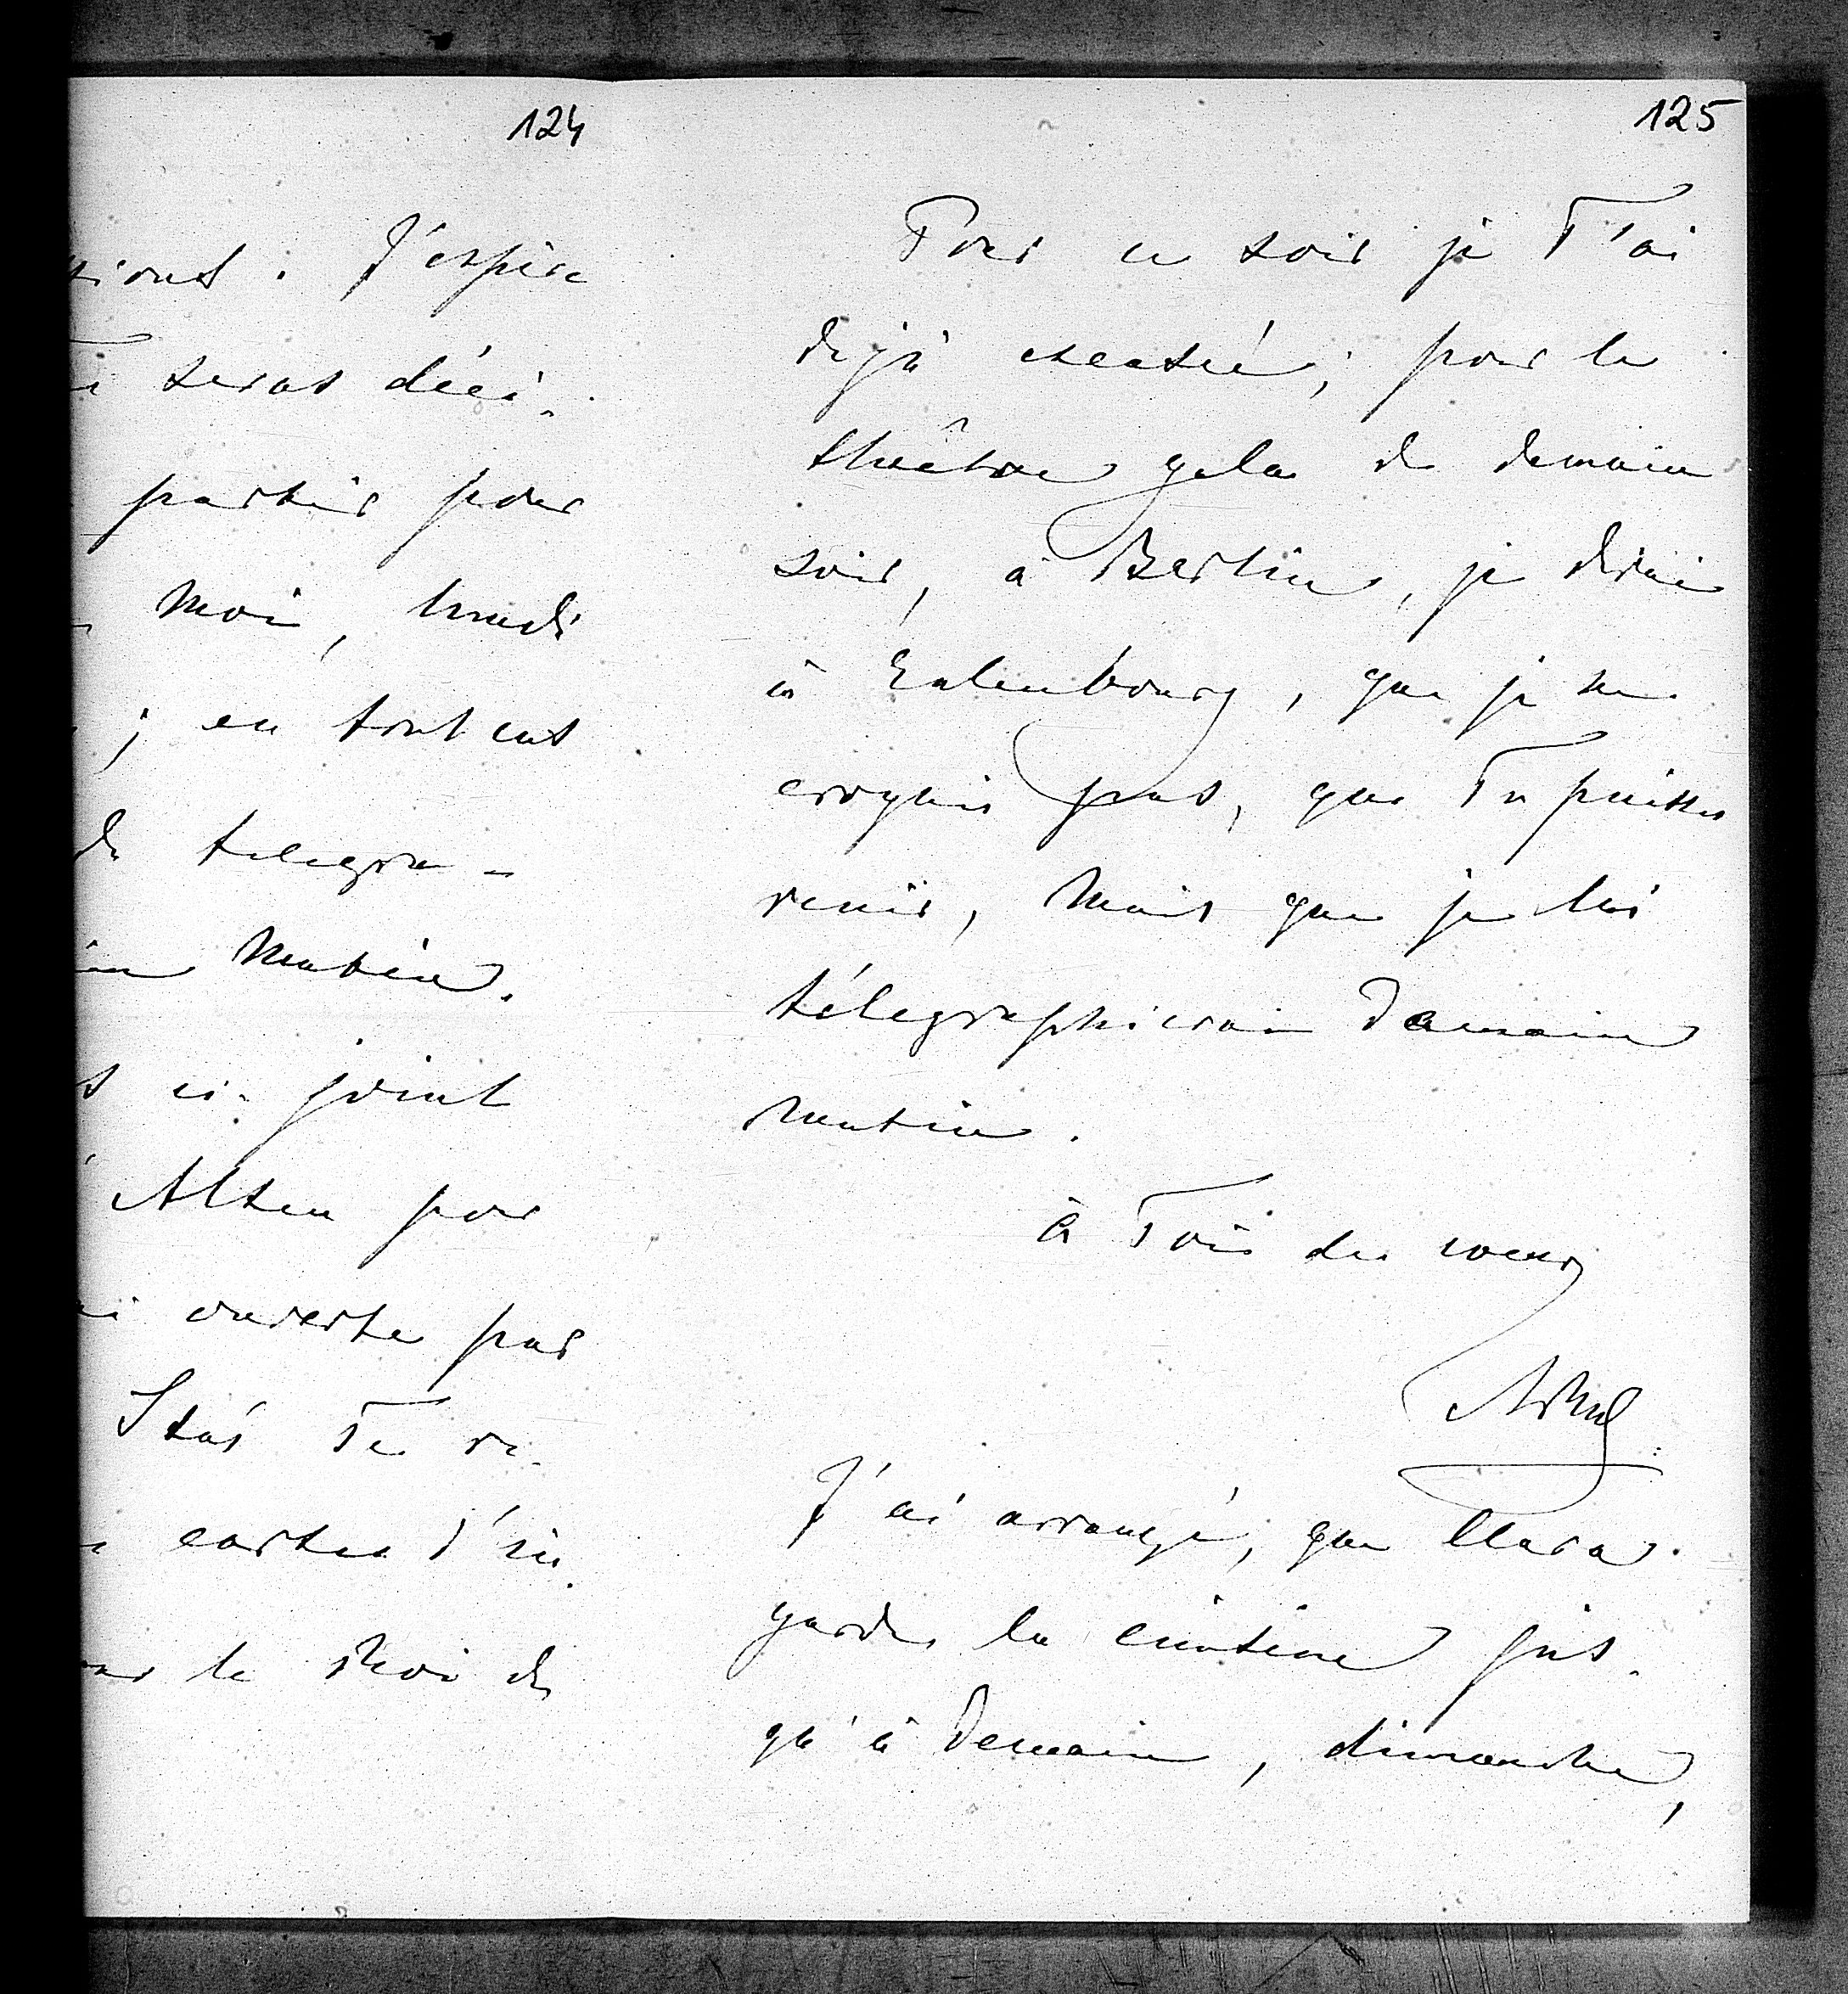 124
J'espère
seras déci-
partir pour
moi, lundi
; en tout cas
de telegra-
matin.
ci-joint
Alsen pour
ouverte par
Stas Te re-
cartes d'in-
le Roi de
125
Pour ce soir je T'ai
dejà excusé; pour le
théâtre gala de demain
soir, à Berlin, je dirai
à Eulenbourg, que je ne
croyais pas, que Tu puisses
venir, mais que je lui
télegraphierai demain
matin.
à Toi de coeur
J'ai arrangé, que Clara
garde la cuisine jus-
qu'à demain, dimanche,